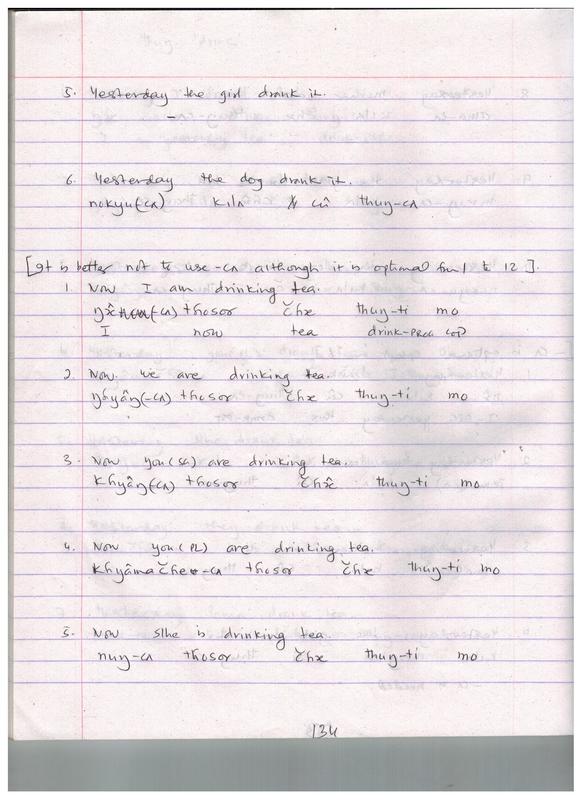 5. Yesterday the girl drank it.
–
6. Yesterday the dog drank it.
nokyu(-cʌ) kilʌ cû thuŋ-cʌ
[It is better not to use -cʌ although it is optional from 1 to 12].
1. Now I am drinking tea.
ŋx̂ (-cʌ) thosor čhx thuŋ-ti mo
I now tea drink-PROG COP
2. Now we are drinking tea.
ŋhyâŋ(-cʌ) thosor čhx thuŋ-ti mo
3. Now you(SG) are drinking tea.
khyâŋ(-cʌ) thosor čhx̂ thuŋ-ti mo
4. Now you(PL) are drinking tea.
khyâma čhe-cʌ thosor čhx thuŋ-ti mo
5. Now s/he is drinking tea
nuŋ-cʌ thosor čhx thuŋ-ti mo
134